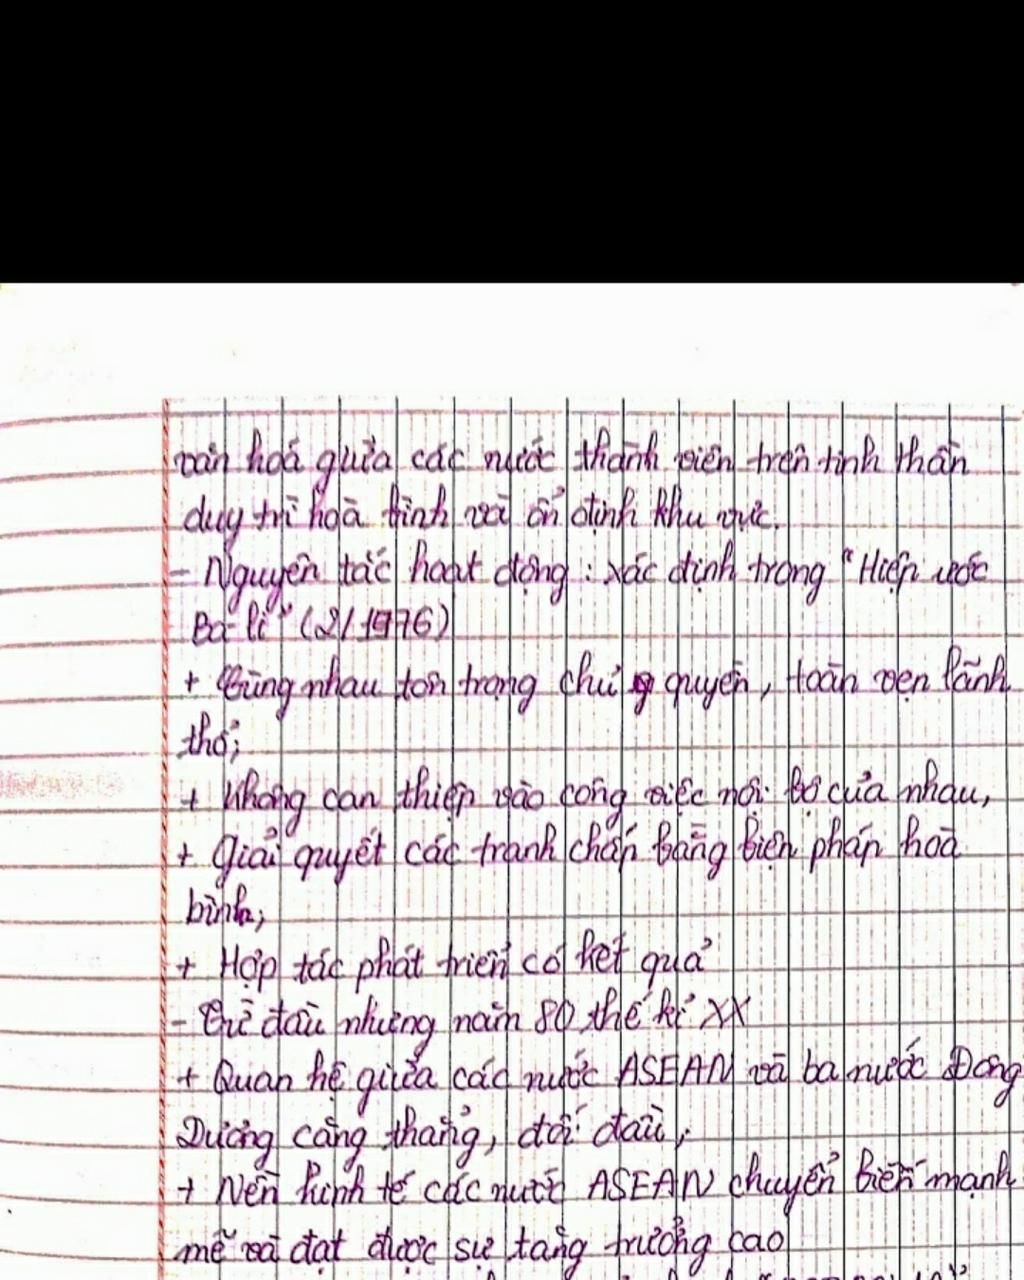 văn hoá giữa các nước thành viên trên tinh thần
duy trì hoà bình và ổn định khu vực.
- Nguyên tắc hoạt động : xác định trong "Hiệp ước
Ba-li" (2/1976)
+ Cùng nhau tôn trọng chủ quyền, toàn vẹn lãnh
thổ;
+ Không can thiệp vào công việc nội bộ của nhau,
+ Giải quyết các tranh chấp bằng biện pháp hoà
bình;
+ Hợp tác phát triển có kết quả
- Từ đầu những năm 80 thế kỉ XX
+ Quan hệ giữa các nước ASEAN và ba nước Đông
Dương căng thẳng, đối đầu;
+ Nền kinh tế các nước ASEAN chuyển biến mạnh
mẽ và đạt được sự tăng trưởng cao